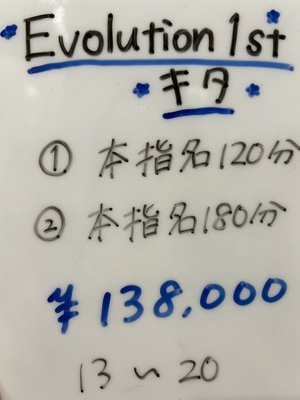 Evolution 1st
キタ
① 本指名120分
② 本指名180分
¥138,000
13~20